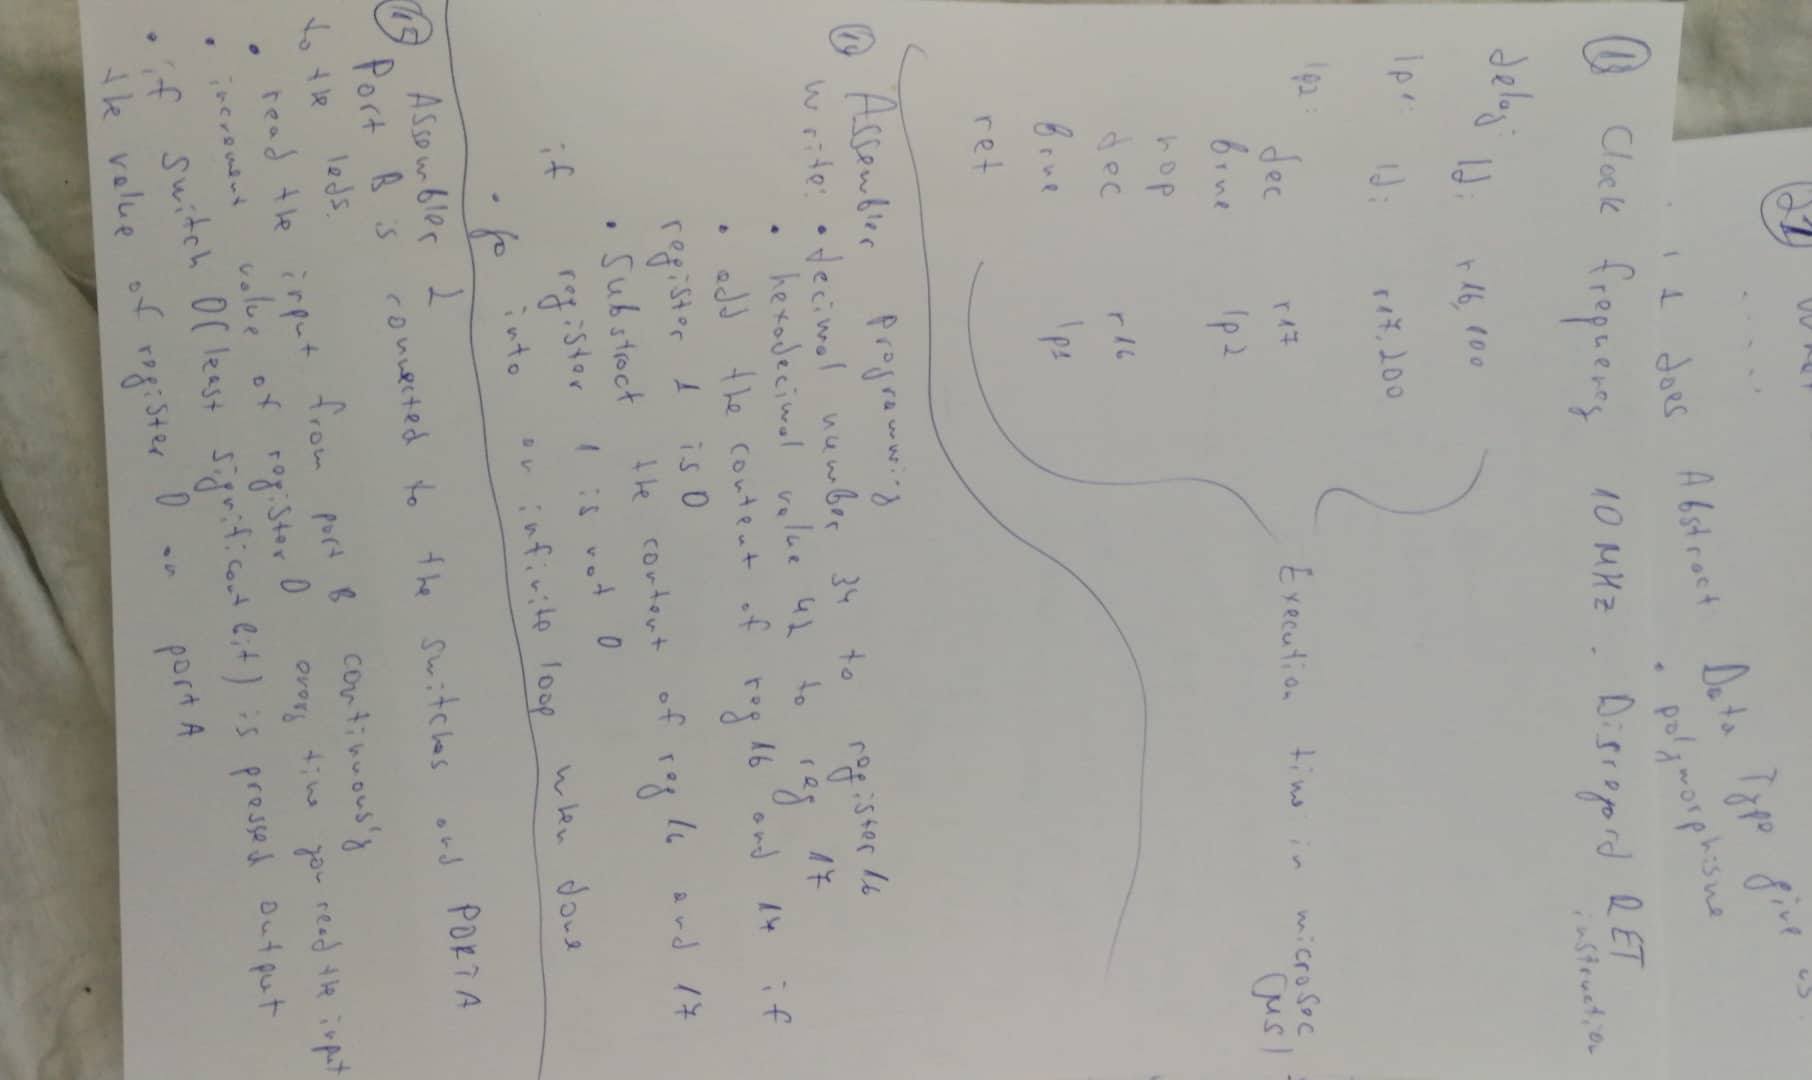 21
.....
does Abstract Data Type give us
• polymorphisme
13 Clock frequency 10 MHz. Disregard RET
instruction
delay:
ldi r16, 100
lp1: ldi r17, 200
lp2:
dec r17
brne lp2
nop
dec r16
brne lp1
ret
Execution time in microsec
(μs)
14 Assembler programming
write: • decimal number 34 to register 16
• hexadecimal value 42 to reg 17
• add the content of reg 16 and 17 if
register 1 is 0
• Substract the content of reg 16 and 17
if register 1 is not 0
• go into an infinite loop when done
15 Assembler 2
Port B is connected to the switches and PORTA
to the leds.
• read the input from port B continuously
• increment value of register 0 every time you read the input
• if switch 0 (least significant bit) is pressed output
the value of register 0 on port A